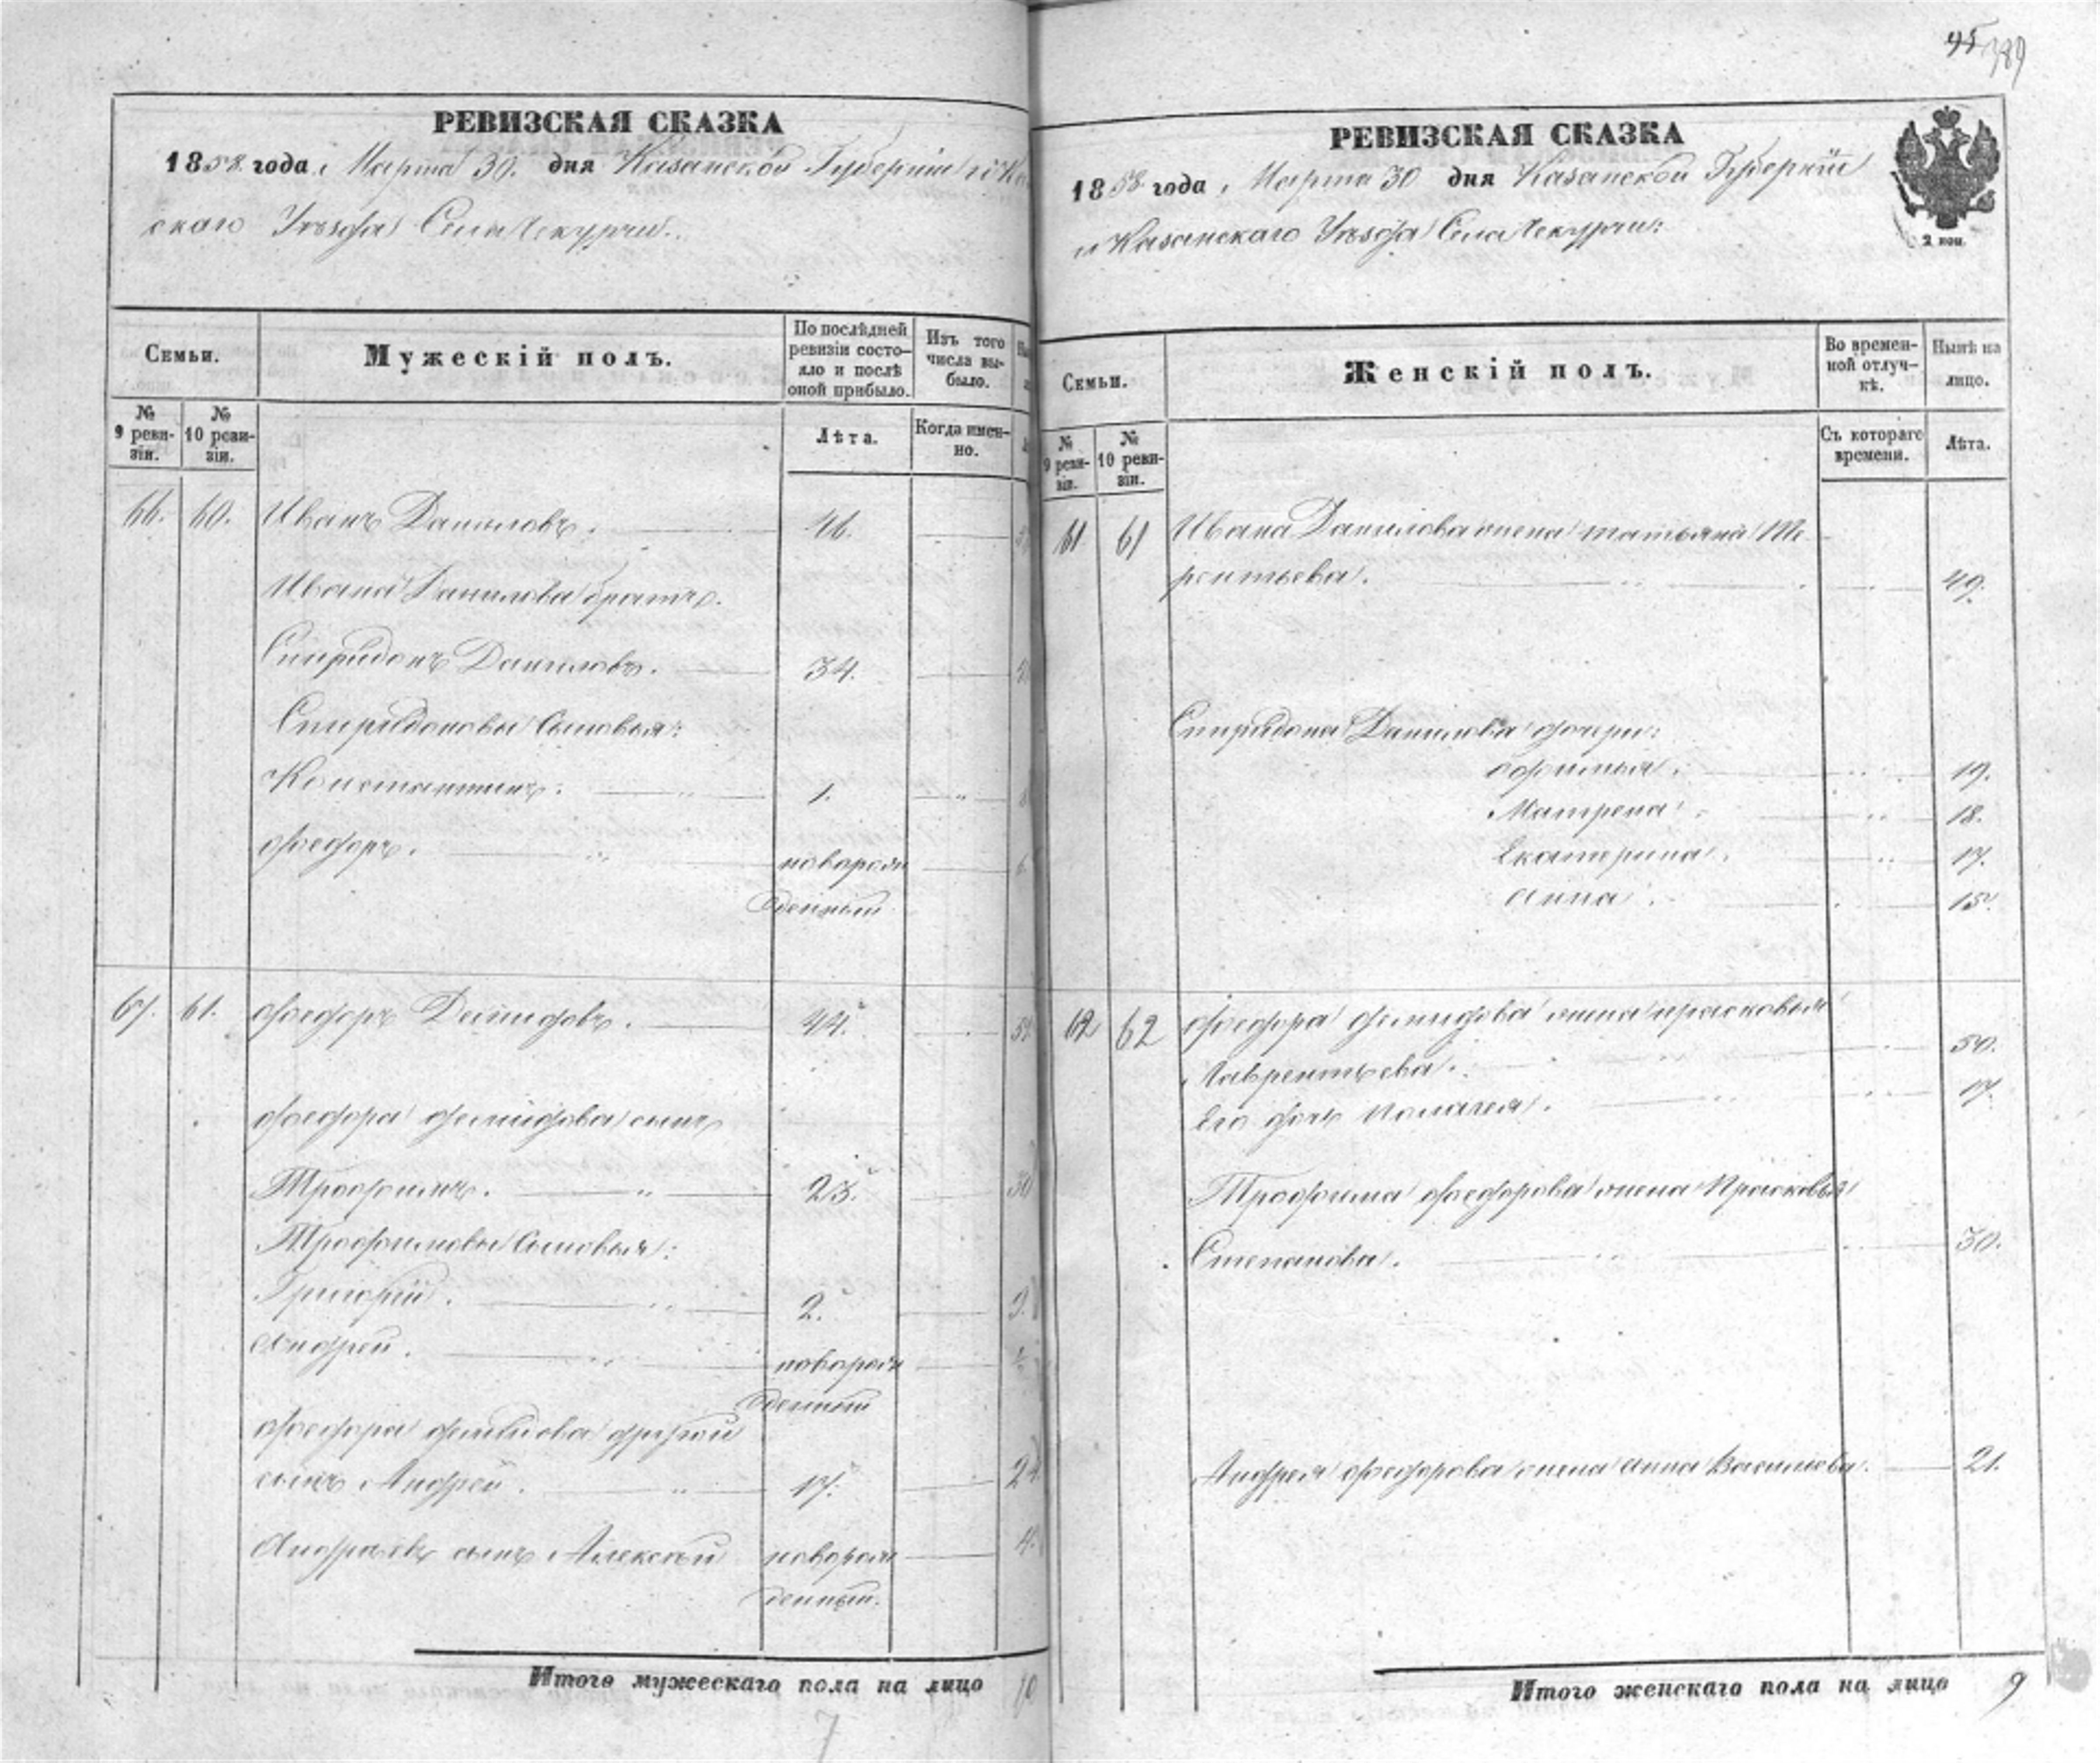 РЕВИЗСКАЯ СКАЗКА
1858 года, Марта 30. дня Казанской Губерніи
скаго Уѣзда Села Чекурчи.
Семьи.
Мужескій полъ.
По послѣдней ревизіи состо-
яло и послѣ оной прибыло.
Изъ того числа вы-
было.
№ 9 реви-
зіи.
№ 10 реви-
зіи.
Лѣта.
Когда имен-
но.
66. 60. Иванъ Даниловъ. 46.
Ивана Данилова братъ.
Спиридонъ Даниловъ. 34.
Спиридоновы Сыновья:
Константинъ. 1.
Федоръ. новорож
денный
67. 61. Федоръ Демидовъ. 44.
Федора Демидова сынъ
Трофимъ. 23.
Трофимовы Сыновья:
Григорій. 2.
Андрей. новорож
денный
Федора Демидова другой
сынъ Андрей. 17.
Андреевъ сынъ Алексей новорож
денный.
Итого мужескаго пола на лицо 10
7
95 389
РЕВИЗСКАЯ СКАЗКА
1858 года, Марта 30 дня Казанской Губерніи
и Казанскаго Уѣзда Села Чекурчи:
2 коп.
Семьи.
Женскій полъ.
Во времен-
ной отлуч-
кѣ.
Нынѣ на
лицо.
№ 9 реви-
зіи.
№ 10 реви-
зіи.
Съ котораго
времени.
Лѣта.
61 61 Ивана Данилова жена Татьяна Те
рентьева. 49.
Спиридона Данилова дочери:
Софитья. 19.
Матрена. 18.
Екатерина. 17.
Анна. 15.
62 62 Федора Демидова жена Прасковья
Лаврентьева. 50.
Его дочь Пелагея. 17.
Трофима Федорова жена Прасковья
Степанова. 30.
Андрея Федорова жена Анна Васильева. 21.
Итого женскаго пола на лицо 9